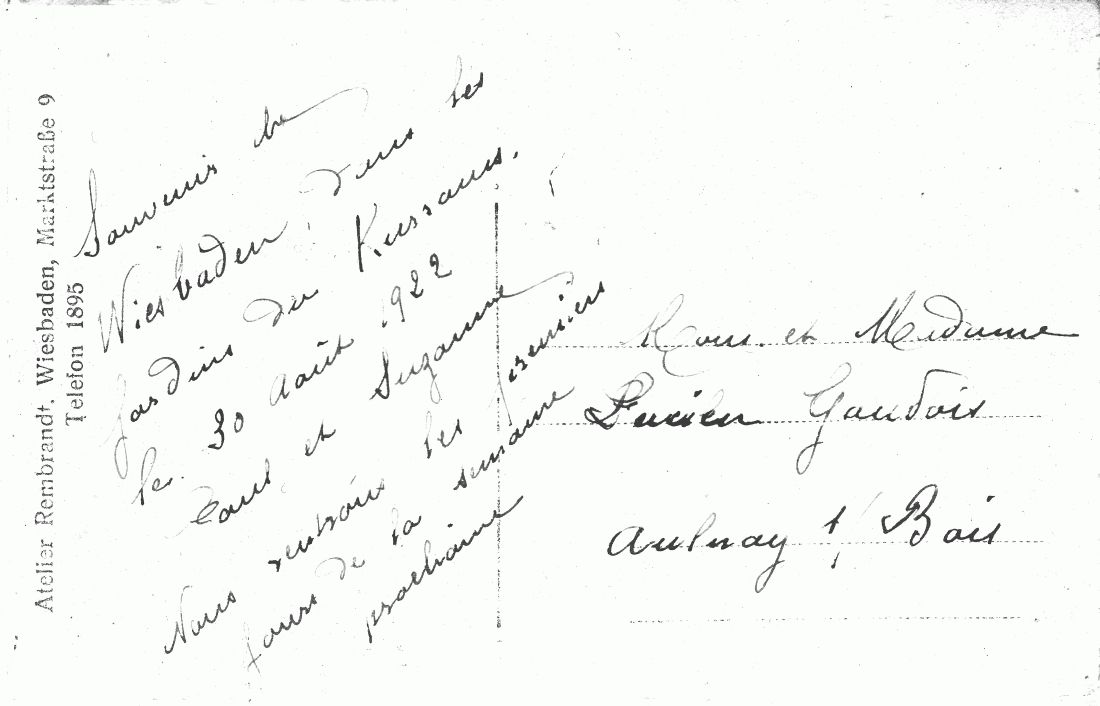 Atelier Rembrandt, Wiesbaden, Marktstraße 9
Telefon 1895
Souvenir de
Wiesbaden, dans les
Jardins du Kursaaus.
le. 30 Août 1922
Paul et Suzanne
Nous rentrons les premiers
jours de la semaine
prochaine
et Madame
Lucien Gaudois
Aulnay s/ Bois